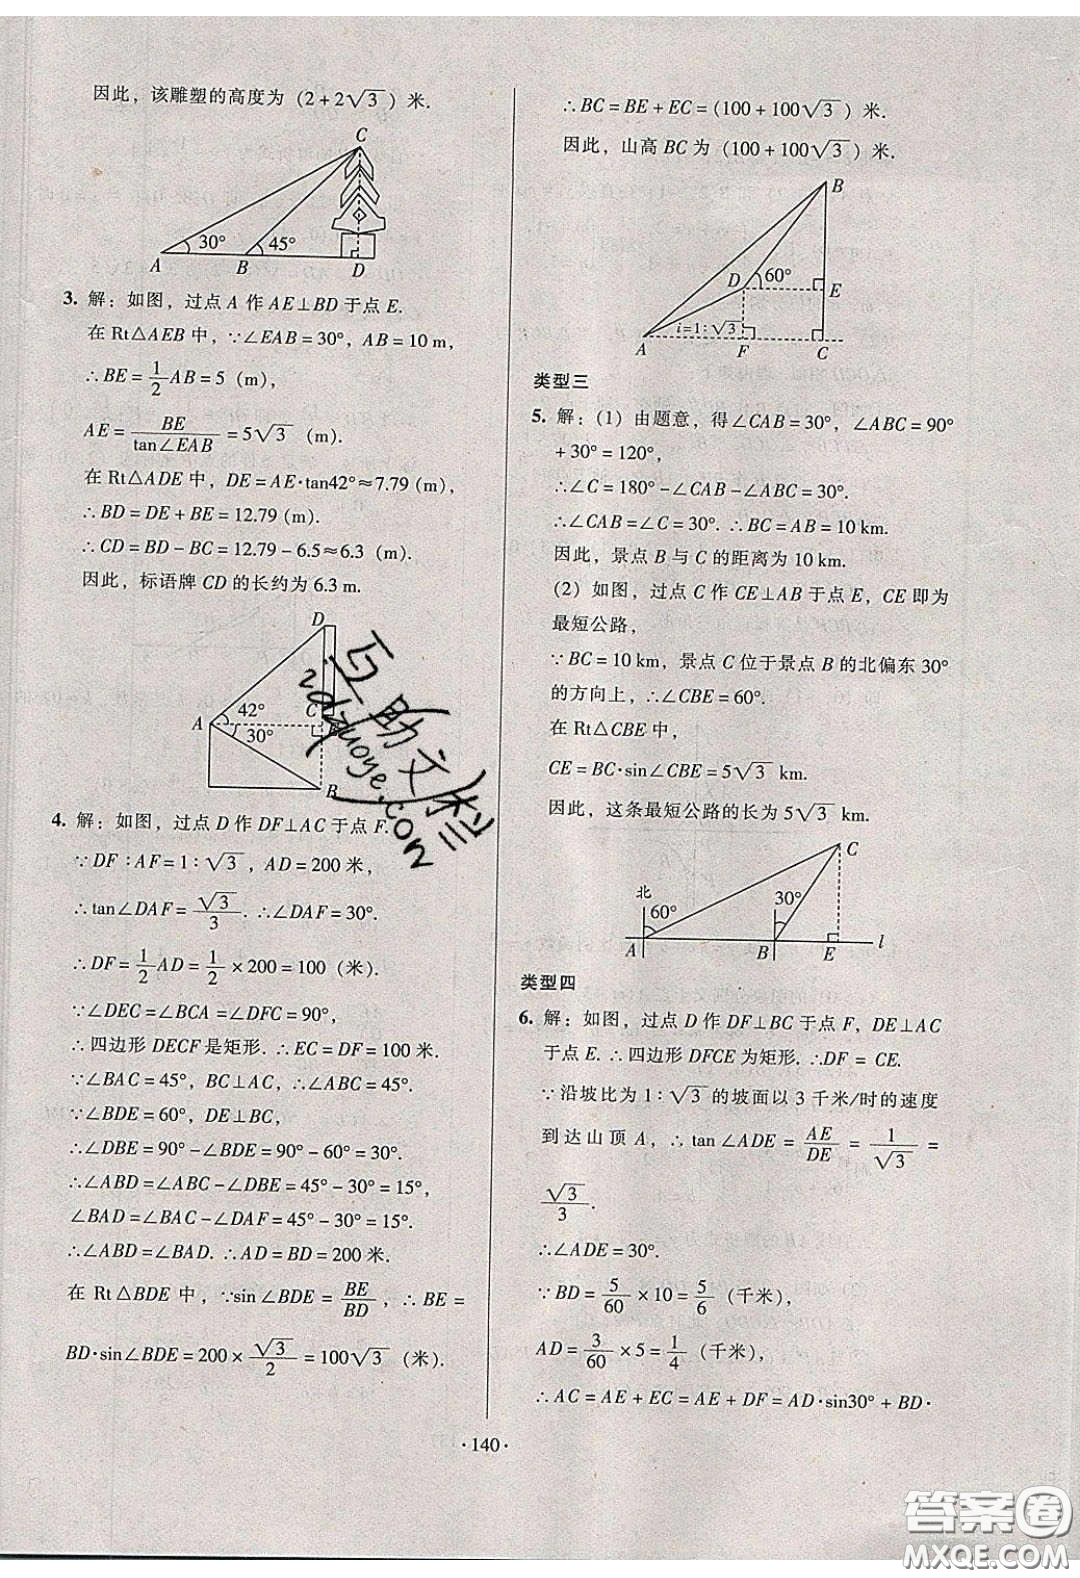 因此，该雕塑的高度为（2+2√3）米.
C
30°
45°
A
B
D
3. 解：如图，过点 A 作 AE⊥BD 于点 E.
在 Rt△AEB 中，∵∠EAB=30°，AB=10 m，
∴BE=1/2 AB=5（m），
AE=BE/tan∠EAB=5√3（m）.
在 Rt△ADE 中，DE=AE·tan42°≈7.79（m），
∴BD=DE+BE=12.79（m）.
∴CD=BD-BC=12.79-6.5≈6.3（m）.
因此，标语牌 CD 的长约为 6.3 m.
D
42°
C
A
30°
E
B
4. 解：如图，过点 D 作 DF⊥AC 于点 F.
∵DF∶AF=1∶√3，AD=200 米，
∴tan∠DAF=√3/3. ∴∠DAF=30°.
∴DF=1/2 AD=1/2×200=100（米）.
∵∠DEC=∠BCA=∠DFC=90°，
∴四边形 DECF 是矩形. ∴EC=DF=100 米.
∵∠BAC=45°，BC⊥AC，∴∠ABC=45°.
∵∠BDE=60°，DE⊥BC，
∴∠DBE=90°-∠BDE=90°-60°=30°.
∴∠ABD=∠ABC-∠DBE=45°-30°=15°，
∠BAD=∠BAC-∠DAF=45°-30°=15°.
∴∠ABD=∠BAD. ∴AD=BD=200 米.
在 Rt△BDE 中，∵sin∠BDE=BE/BD，∴BE=
BD·sin∠BDE=200×√3/2=100√3（米）.
∴BC=BE+EC=(100+100√3)米.
因此，山高 BC 为（100+100√3）米.
B
D
60°
E
i=1∶√3
A
F
C
类型三
5. 解：(1) 由题意，得∠CAB=30°，∠ABC=90°
+30°=120°，
∴∠C=180°-∠CAB-∠ABC=30°.
∴∠CAB=∠C=30°. ∴BC=AB=10 km.
因此，景点 B 与 C 的距离为 10 km.
(2) 如图，过点 C 作 CE⊥AB 于点 E，CE 即为
最短公路，
∵BC=10 km，景点 C 位于景点 B 的北偏东 30°
的方向上，∴∠CBE=60°.
在 Rt△CBE 中，
CE=BC·sin∠CBE=5√3 km.
因此，这条最短公路的长为 5√3 km.
C
北
60°
30°
A
B
E
l
类型四
6. 解：如图，过点 D 作 DF⊥BC 于点 F，DE⊥AC
于点 E. ∴四边形 DFCE 为矩形. ∴DF=CE.
∵沿坡比为 1∶√3 的坡面以 3 千米/时的速度
到达山顶 A，∴tan∠ADE=AE/DE=1/√3=
√3/3.
∴∠ADE=30°.
∵BD=5/60×10=5/6（千米），
AD=3/60×5=1/4（千米），
∴AC=AE+EC=AE+DF=AD·sin30°+BD·
·140·
互助文科
zuoye.con
答案圈
MXQE.COM